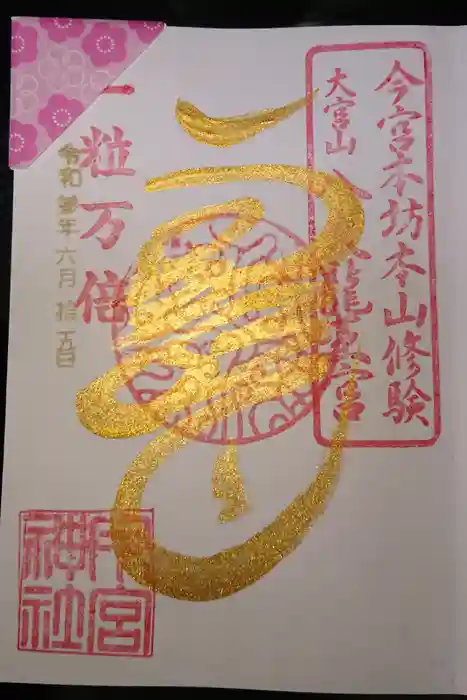 今宮本坊本山修験
大宮山 八大龍王宮
一粒万倍
令和 弐年 六月 拾五日
今宮
神社